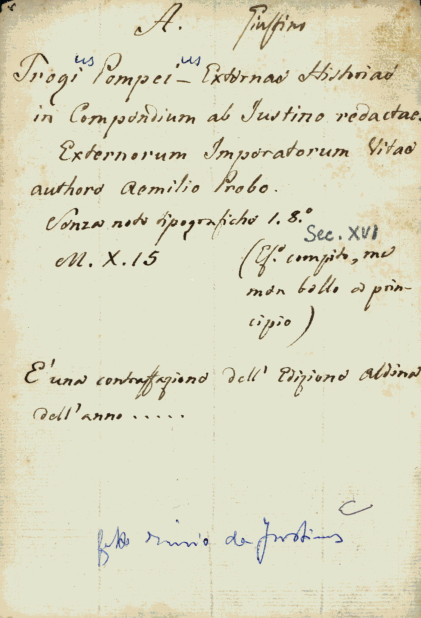 A. Giustino
us us
Trogi Pompei – Externae Historiae
in Compendium ab Iustino redactae.
Externorum Imperatorum Vitae
authore Aemilio Probo.
Senza note tipografiche 1. 8.°
Sec. XVI
M. X. 15 (Es.° compito, ma
men bello a prin-
cipio)
E' una contraffazione dell' Edizione Aldina
dell'anno .....
fatto rinvio da Justinus